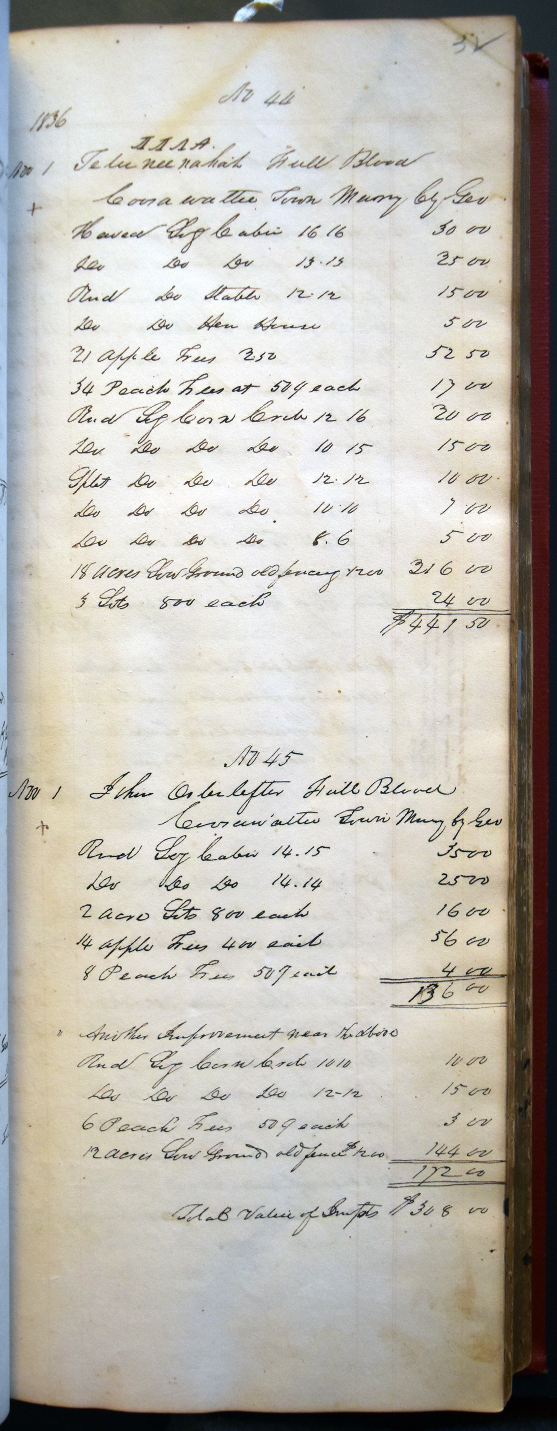 32
No 44
1836
No 1 Te lu nee nah ah Full Blood
Coosawattee Town Murry Cty Geo
Hewed Log Cabin 16 16 30 00
Do Do Do 13.13 25 00
Rnd Do Stable 12.12 15 00
Do Do Hen House 5 00
21 Apple Trees 250 52 50
34 Peach Trees at 50¢ each 17 00
Rnd Log Corn Crib 12 16 20 00
Do Do Do Do 10 15 15 00
Split Do Do Do 12.12 10 00
Do Do Do Do 10.10 7 00
Do Do Do Do 8.6 5 00
18 acres Low Ground old fencing 1200 216 00
3 Lots 800 each 24 00
$441 50
No 45
No 1 John Full Blood
Coosawattee Town Murry Cty Geo
Rnd Log Cabin 14.15 35 00
Do Do Do 14.14 25 00
2 acre Lots 800 each 16 00
14 apple Trees 400 each 56 00
8 Peach Trees 50¢ each 4 00
136 00
" Another Improvement near the above
Rnd Log Corn Crib 10 10 10 00
Do Do Do Do 12-12 15 00
6 Peach Trees 50¢ each 3 00
12 acres Low Ground old fence $1200 144 00
172 00
Total Value of Impts $308 00